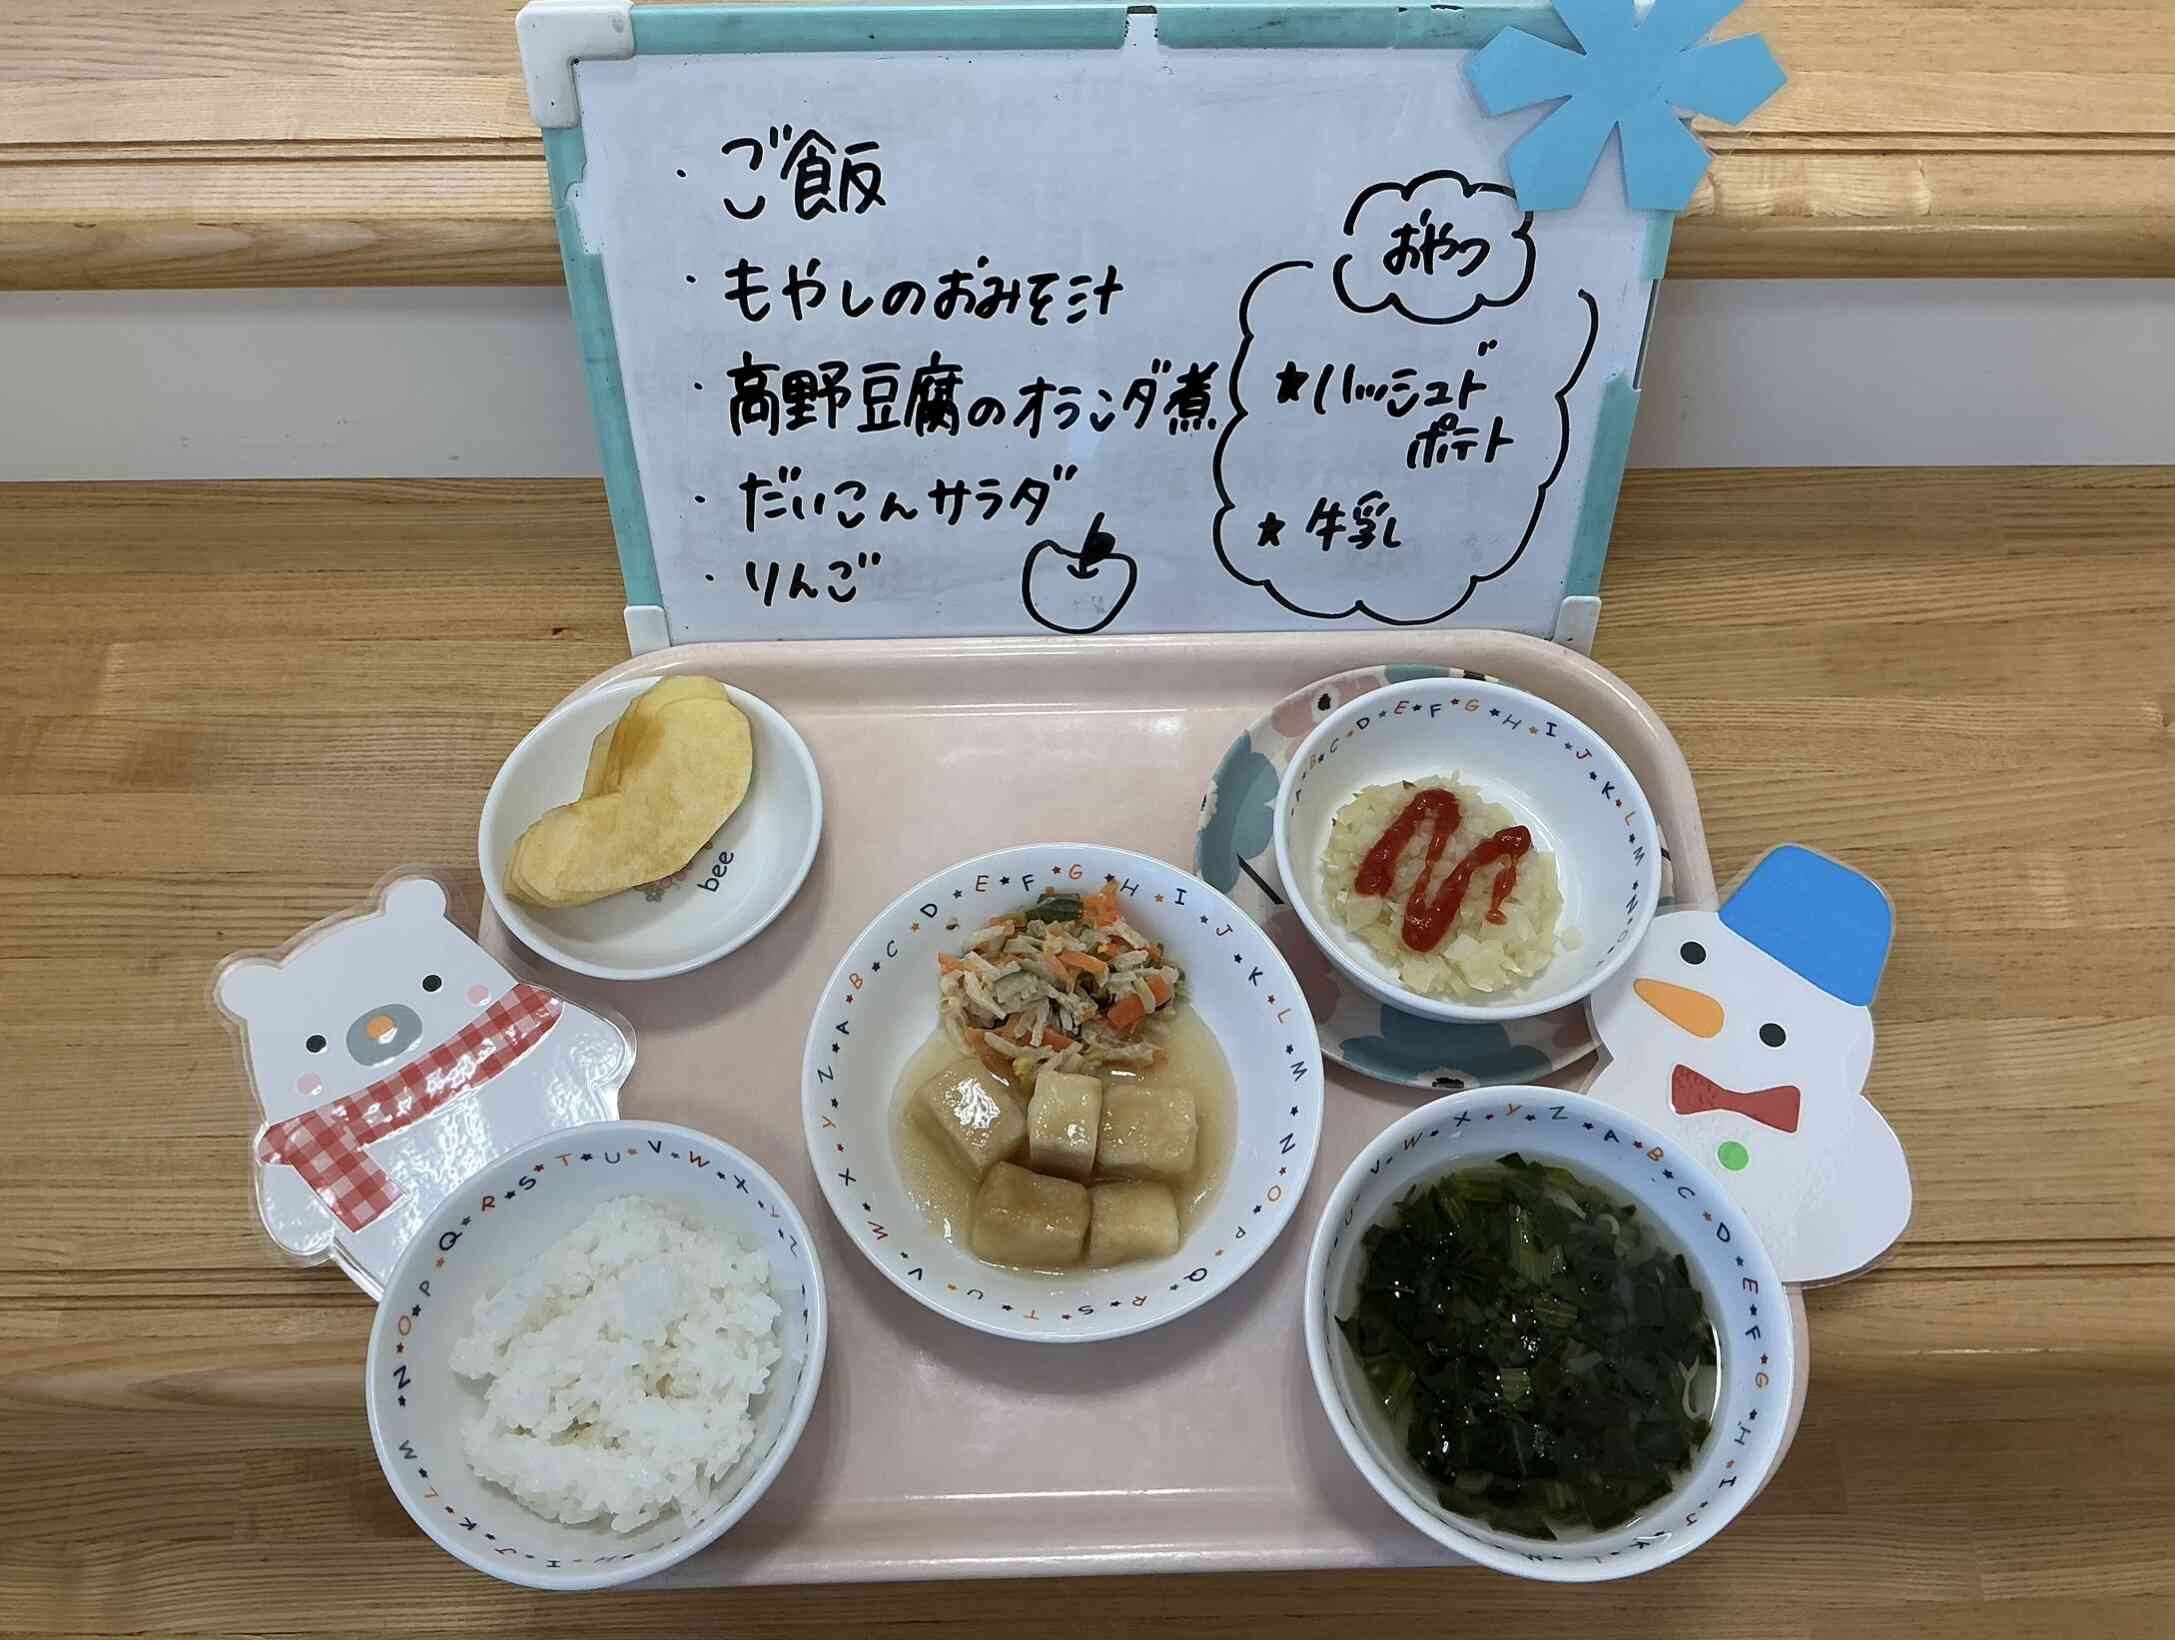 ・ご飯
・もやしのおみそ汁
・高野豆腐のオランダ煮
・だいこんサラダ
・りんご
おやつ
★ハッシュド
ポテト
★牛乳
bee
A★B★C★D★E★F★G★H★I★J★K★L★M★N★O
A★B★C★D★E★F★G★H★I★J★K★L★M★N★O★P★Q★R★S★T★U★V★W★X★Y★Z
L★M★N★O★P★Q★R★S★T★U★V★W★X★Y★Z
U★V★W★X★Y★Z★A★B★C★D★E★F★G★H★I★J★K★L★M